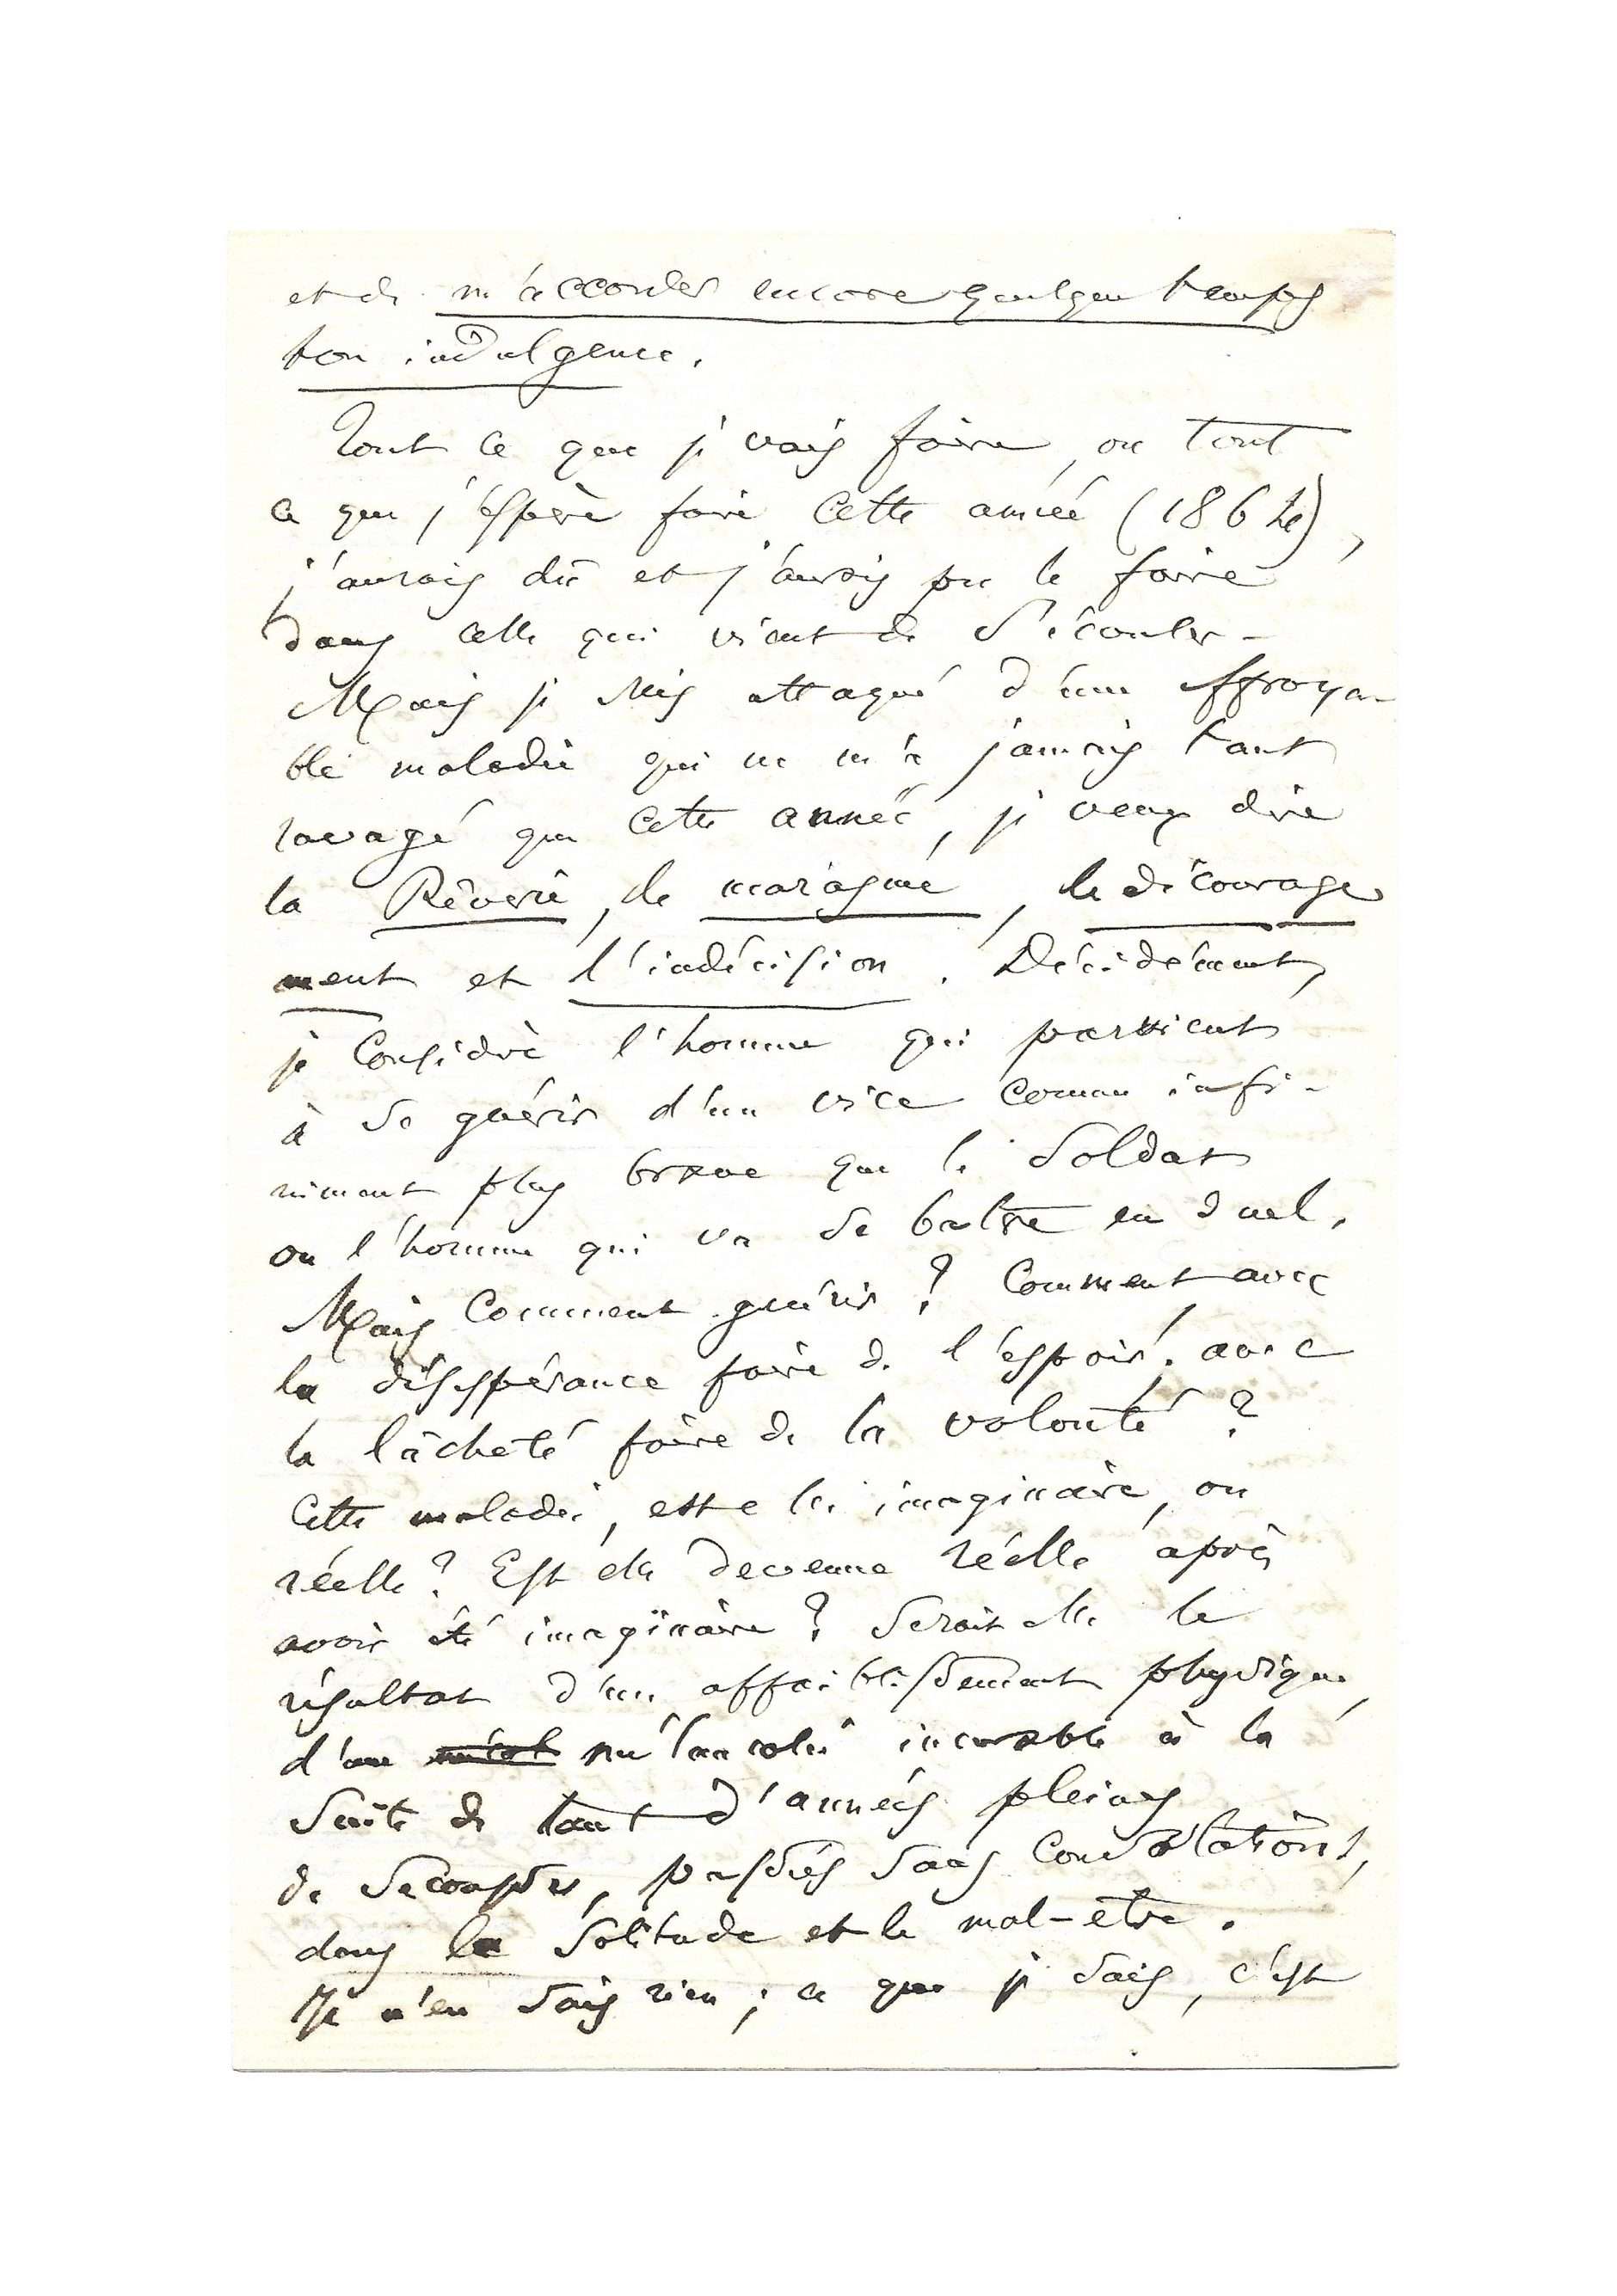 et de m'accorder encore quelque temps
ton indulgence.
Tout ce que je vais faire, ou tout
ce que j'espère faire cette année (1864),
j'aurais dû et j'aurais pu le faire
dans celle qui vient de s'écouler –
Mais je suis attaqué d'une effroya-
ble maladie qui ne m'a jamais tant
ravagé que cette année, je veux dire
la Rêverie, le marasme, le décourage
ment et l'indécision. Décidément,
je considère l'homme qui parvient
à se guérir d'un vice comme infi-
niment plus brave que le soldat
ou l'homme qui va se battre en duel.
Mais comment guérir ? Comment avec
la désespérance faire de l'espoir, avec
la lâcheté faire de la volonté ?
Cette maladie, est elle imaginaire, ou
réelle ? Est elle devenue réelle après
avoir été imaginaire ? Serait elle le
résultat d'un affaiblissement physique,
d'une mélancolie incurable à la
suite de tant d'années pleines
de secousses, passées sans consolations,
dans la solitude et le mal-être.
Je n'en sais rien ; ce que je sais, c'est